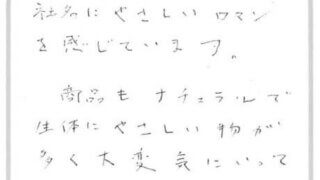 社名にやさしいロマン
を感じています。
商品もナチュラルで
生体にやさしい物が
多く大変気にいって